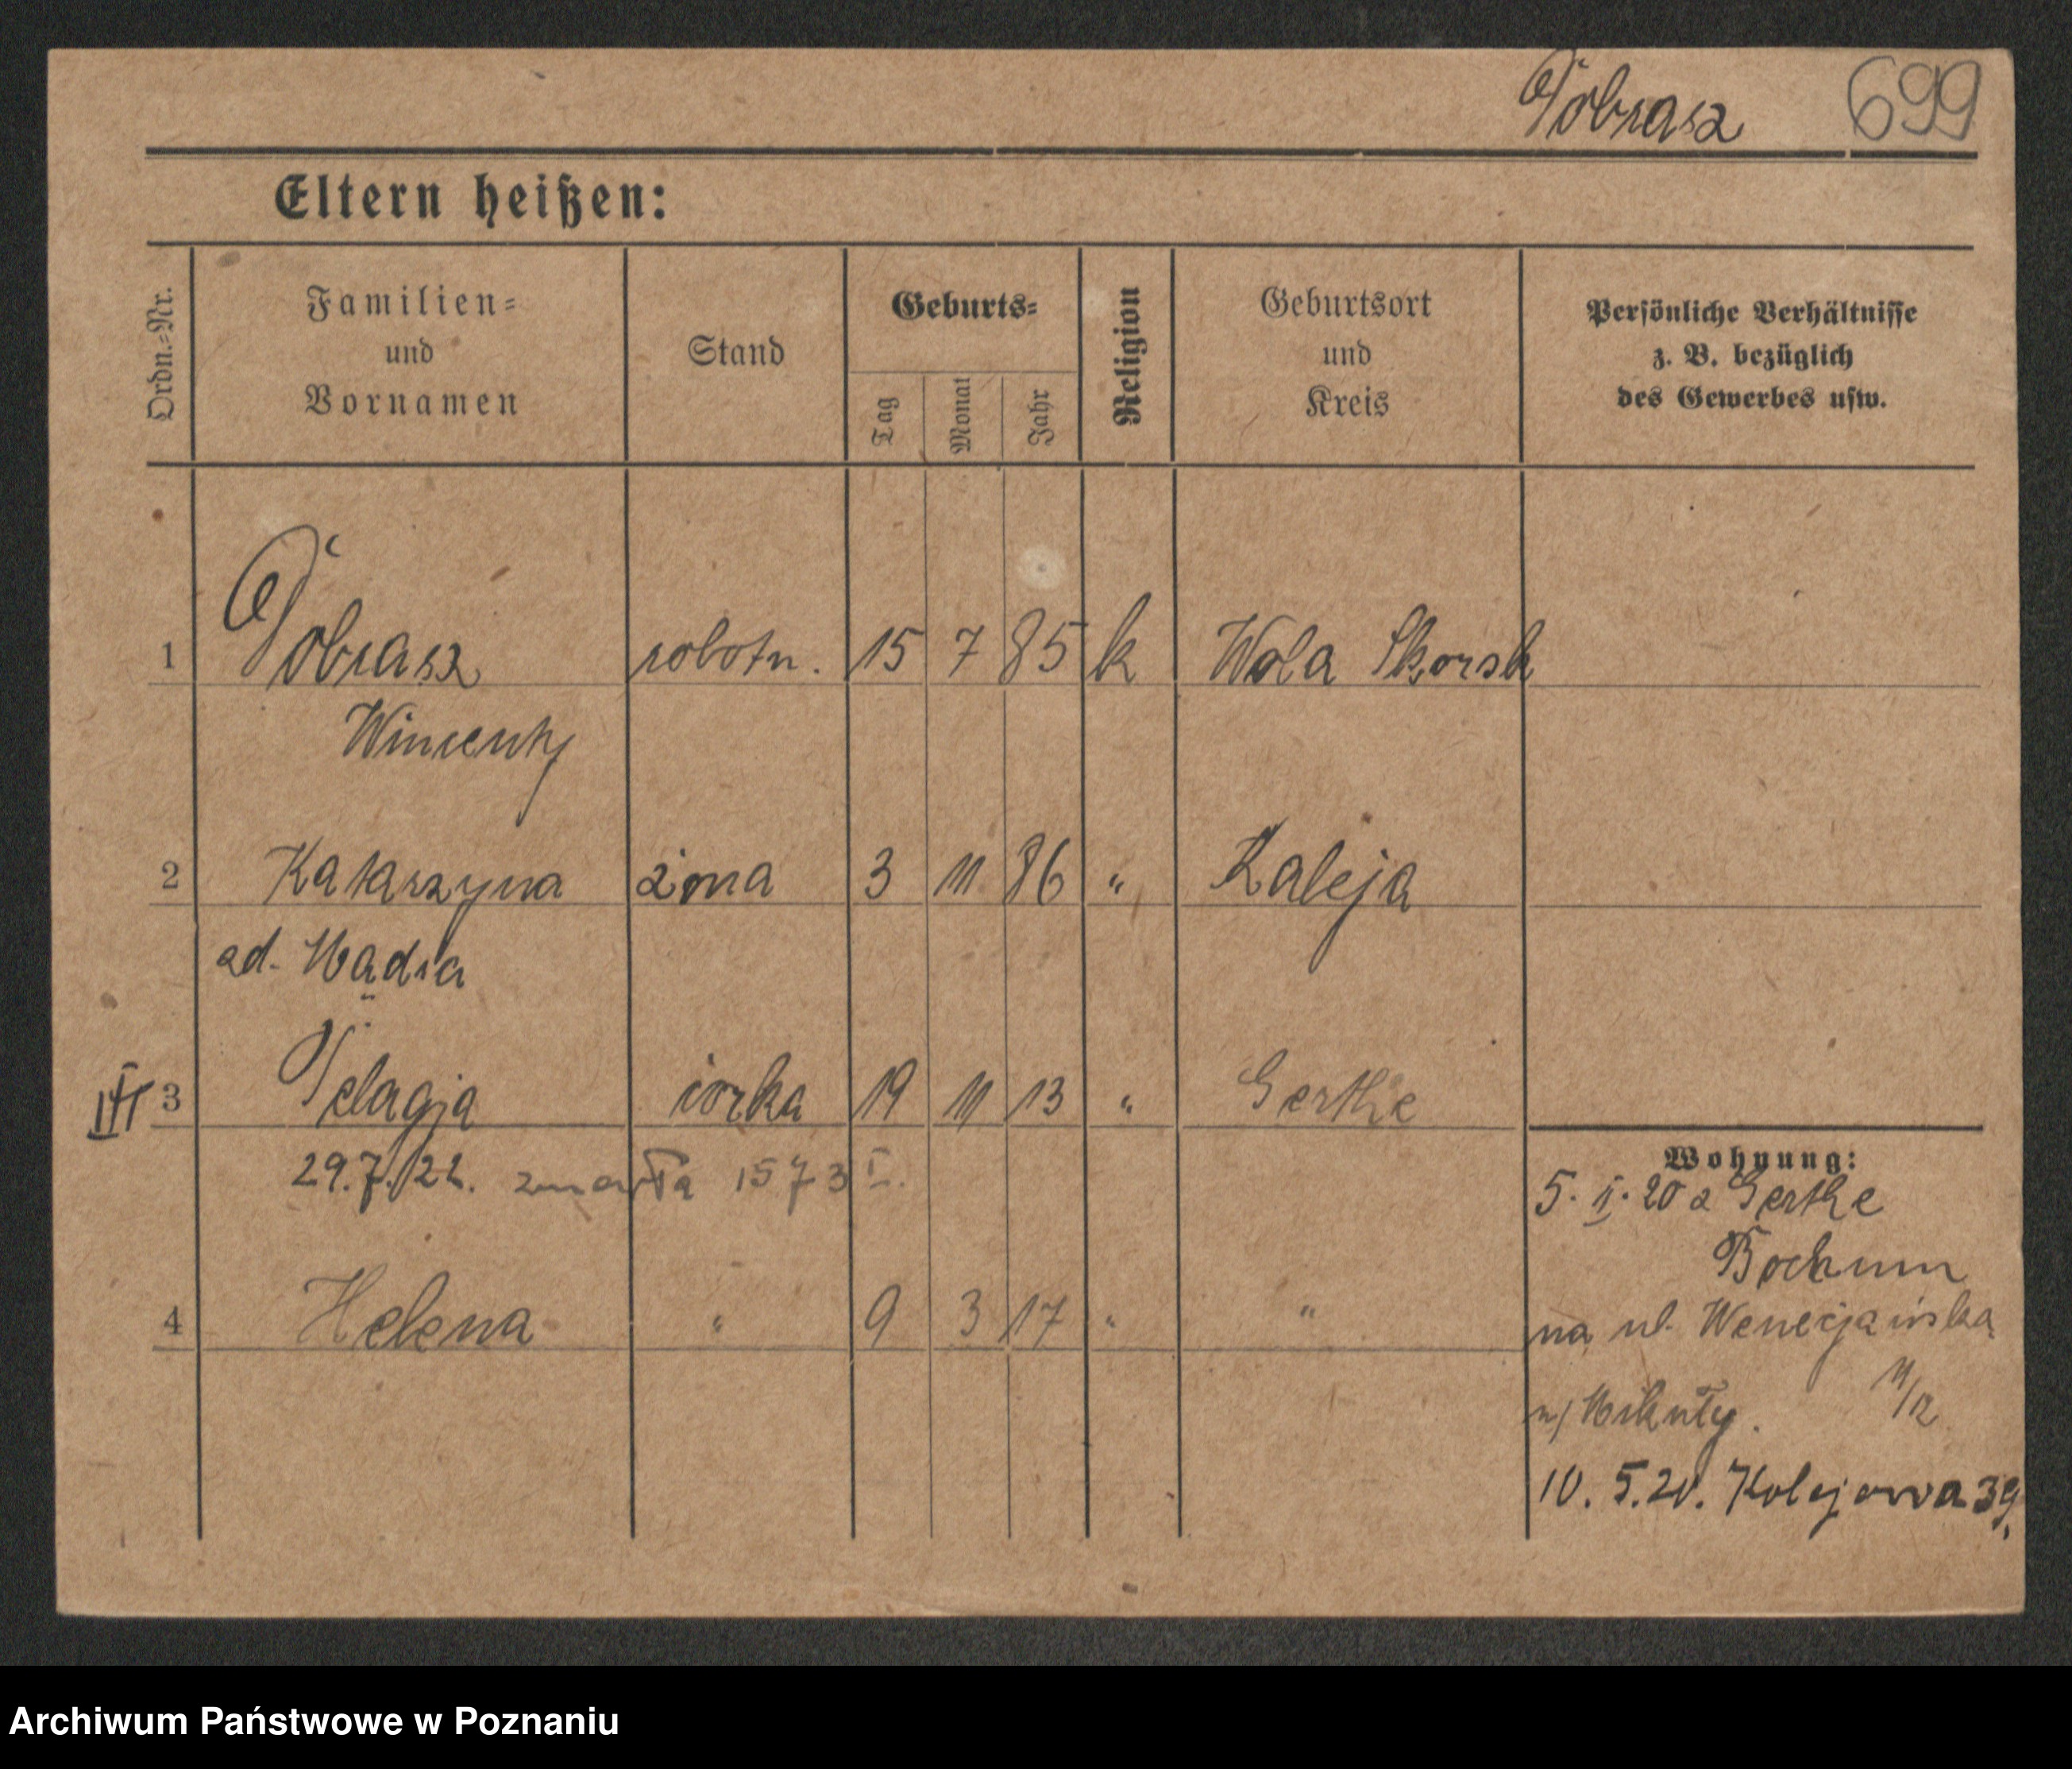 Pobrasz 699
Eltern heißen:
Ordn.=Nr.
Familien=
und
Vornamen
Stand
Geburts=
Tag
Monat
Jahr
Religion
Geburtsort
und
Kreis
Persönliche Verhältnisse
z. B. bezüglich
des Gewerbes usw.
1 Pobrasz robotn. 15 7 85 k Wola Skorsk
Wincenty
2 Katarzyna żona 3 11 86 " Kaleja
3 Pelagja córka 19 11 13 " Gerthe
29.7.22. zmarła 1573
Wohnung:
5. II. 20 z Gerthe
Bochum
4 Helena " 9 3 17 " "
na ul. Wenecjańska
11/12
10. 5. 20. Kolejowa 39.
Archiwum Państwowe w Poznaniu